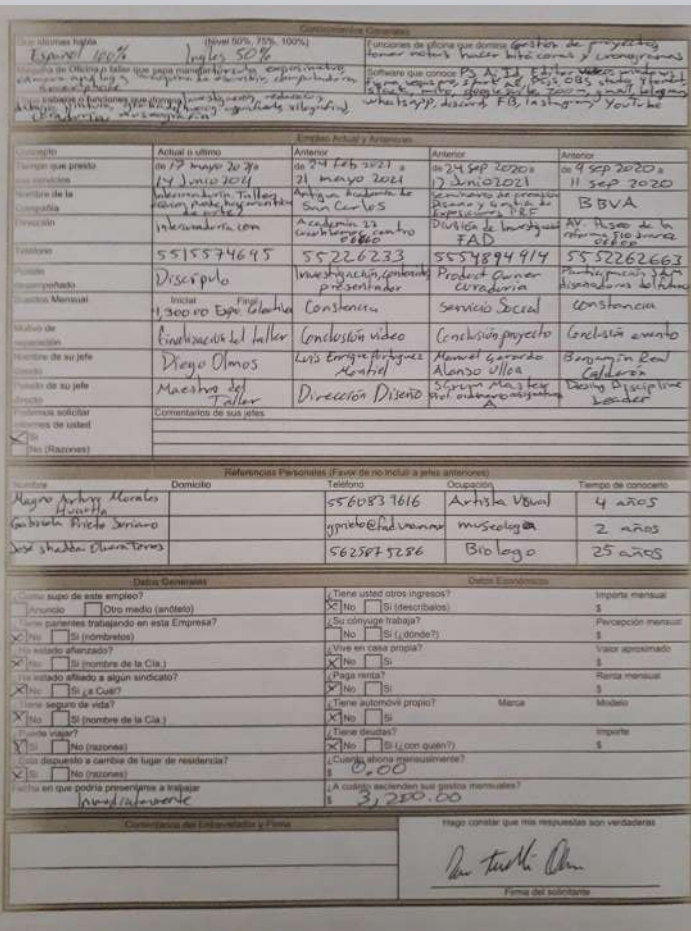 Conocimientos Generales
Que idiomas habla (Nivel 50%, 75%, 100%)
Español 100% Ingles 50%
Funciones de oficina que domina Gestión de proyectos,
tomar notas hacer bitácoras y cronogramas
Máquina de Oficina o taller que sepa manejar
Software que conoce Ps, Ai, Id, Editor video
zoom, gmail, telegram
whatsapp, discord FB, Instagram YouTube
Otros trabajos o funciones que domina Investigación, redacción,
dibujo, pintura xilografía,
Curaduría museografía
Empleo Actual y Anteriores
Concepto Actual o ultimo Anterior Anterior Anterior
Tiempo que presto sus servicios
de 17 mayo 2021 a 14 Junio 2021
de 24 feb 2021 a 21 mayo 2021
de 24 sep 2020 a 12 Junio 2021
de 9 sep 2020 a 11 sep 2020
Nombre de la Compañía
Intercuraduría Taller
Antigua Academia de San Carlos
Seminario de creación Diseño y Gestión de Exposiciones
BBVA
Dirección
Intercuraduria.com
Academia 22 cuauhtemoc, centro 06060
División de Investigación FAD
AV. Paseo de la reforma 510 Juarez 06600
Teléfono 5515574695 55226233 5554894914 5552262663
Puesto desempeñado
Discípulo
Investigación, contenido presentador
Product Owner curaduria
Participación diseñadores del futuro
Sueldos Mensual
Inicial Final
1,300.00 Expo. Colectiva
Constancia
Servicio Social
constancia
Motivo de separación
Finalización del taller Conclusión video Conclusión proyecto Conclusión evento
Nombre de su jefe directo
Diego Olmos
Luis Enrique Montiel
Manuel Gerardo Alonso Ulloa
Benjamin Real Calderón
Puesto de su jefe directo
Maestro del Taller
Dirección Diseño
Scrum Master Prof. ordinario asignatura A
Desing Discipline Leader
Podemos solicitar informes de usted
Comentarios de sus jefes
Si
No (Razones)
Referencias Personales (Favor de no incluir a jefes anteriores)
Nombre Domicilio Teléfono Ocupación Tiempo de conocerlo
Magno Arturo Morales Huerta 5560839616 Artista Visual 4 años
Gabriela Prieto Soriano museologa 2 años
José shaddai Olvera Torres 5625875286 Biologo 25 años
Datos Generales
¿Como supo de este empleo?
Anuncio Otro medio (anótelo)
¿Tiene parientes trabajando en esta Empresa?
No Si (nómbrelos)
¿Ha estado afianzado?
No Si (nombre de la Cía.)
¿Ha estado afiliado a algún sindicato?
No Si ¿a Cuál?
¿Tiene seguro de vida?
No Si (nombre de la Cía.)
¿Puede viajar?
Si No (razones)
¿Esta dispuesto a cambia de lugar de residencia?
Si No (razones)
Fecha en que podría presentarse a trabajar
Inmediatamente
Datos Económicos
¿Tiene usted otros ingresos? Importe mensual
No Si (descríbalos) $
¿Su cónyuge trabaja? Percepción mensual
No Si (¿dónde?) $
¿Vive en casa propia? Valor aproximado
No Si $
¿Paga renta? Renta mensual
No Si $
¿Tiene automóvil propio? Marca Modelo
No Si
¿Tiene deudas? Importe
No Si (¿con quién?) $
¿Cuanto abona mensualmente?
$ 0.00
¿A cuánto ascienden sus gastos mensuales?
$ 3,200.00
Comentarios del Entrevistador y Firma
Hago constar que mis respuestas son verdaderas
Firma del solicitante